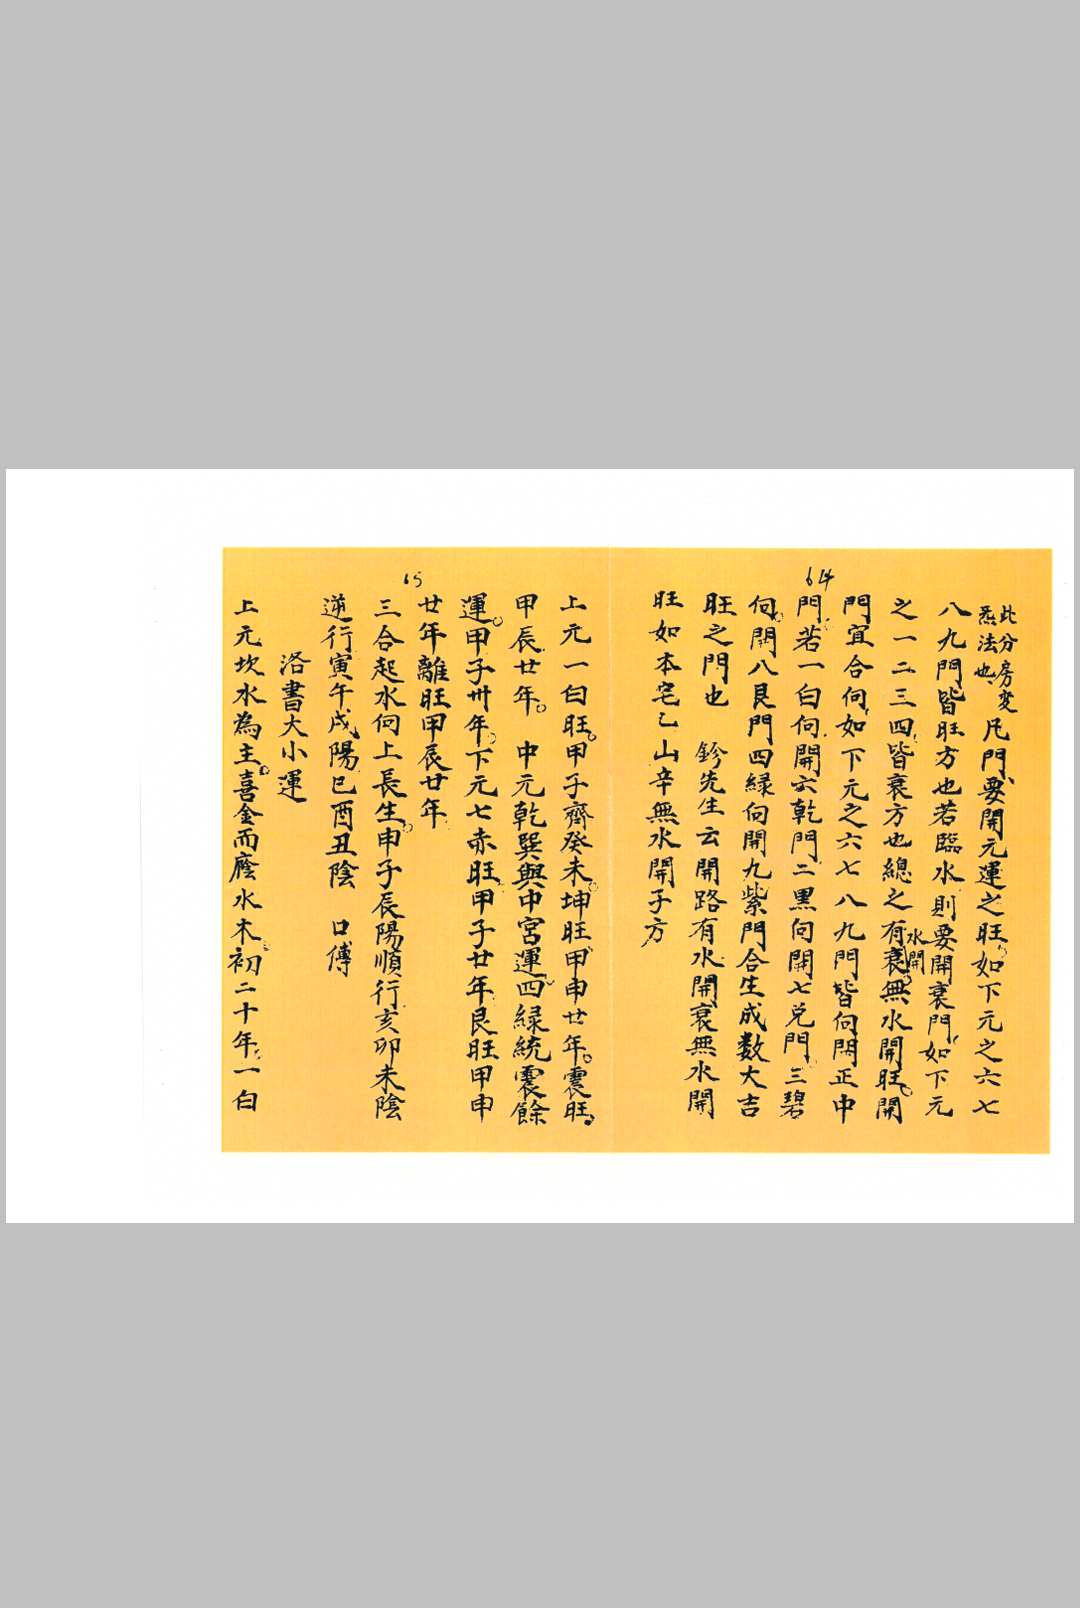 64
此分房变
炁法也 凡門要開元運之旺如下元之六七
八九門皆旺方也若臨水則要開衰門如下元
之一二三四皆衰方也總之有水開衰無水開旺開
門宜合向如下元之六七八九門皆向開正中
門若一白向開六乾門二黑向開七兑門三碧
向開八艮門四緑向開九紫門合生成数大吉
旺之門也 鈐先生云開路有水開衰無水開
旺如本宅乙山辛無水開子方
15
上元一白旺甲子齊癸未坤旺甲申廿年震旺
甲辰廿年 中元乾巽與中宮運四緑統震餘
運甲子卅年下元七赤旺甲子廿年艮旺甲申
廿年離旺甲辰廿年
三合起水向上長生申子辰陽順行亥卯未陰
逆行寅午戌陽巳酉丑陰 口傳
洛書大小運
上元坎水為主喜金而廕水木初二十年一白